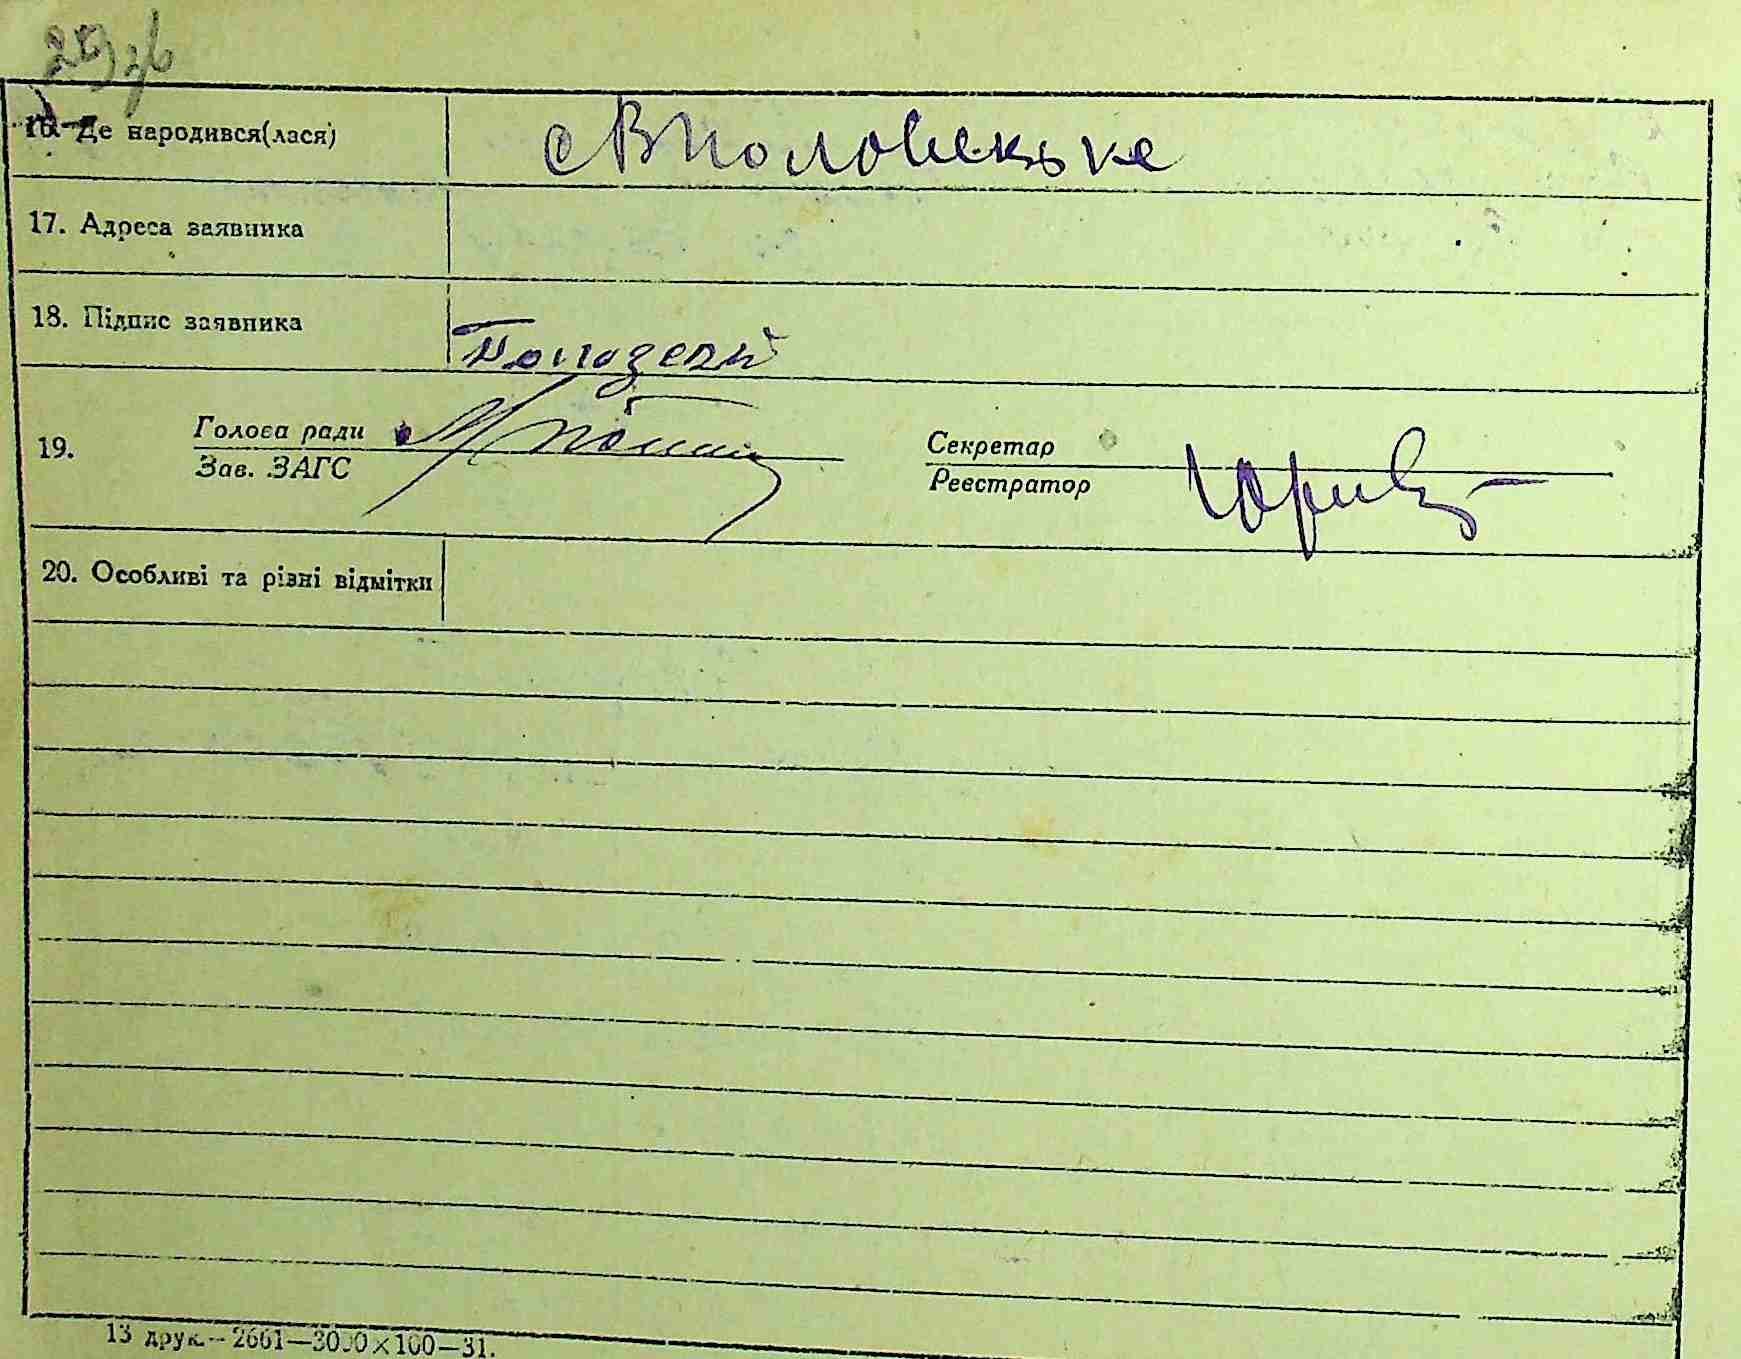 25 зв
16. Де народився(лася) с В Половецьке
17. Адреса заявника
18. Підпис заявника
19. Голова ради
Зав. ЗАГС
Секретар
Реєстратор
20. Особливі та різні відмітки
13 друк.—2661—3000×100—31.